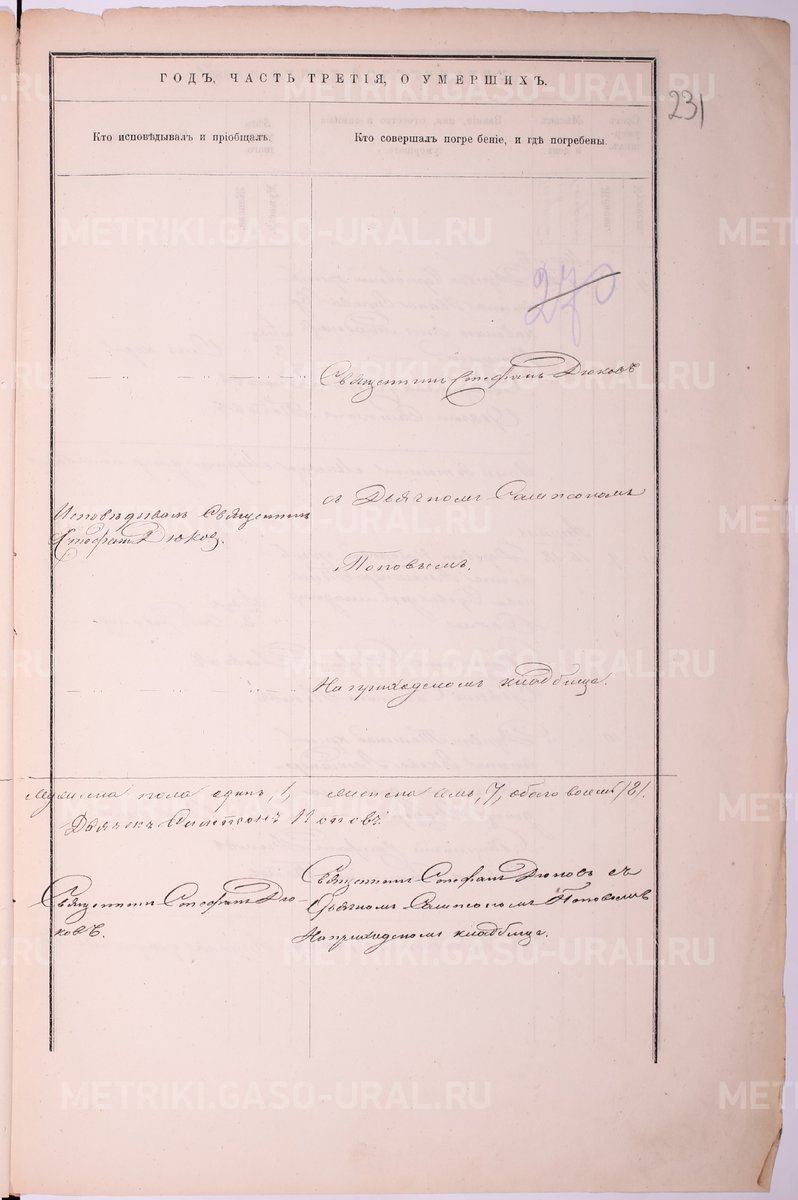 ГОДЪ, ЧАСТЬ ТРЕТІЯ, О УМЕРШИХЪ.
231
Кто исповѣдывалъ и пріобщалъ.
Кто совершалъ погребеніе, и гдѣ погребены.
270
Священникъ Стефанъ Дюковъ
съ Дьячкомъ Сампсономъ
Исповѣдывалъ Священникъ
Стефанъ Дюковъ.
Поповымъ.
На приходскомъ кладбище.
Мужеска пола одинъ, 1, женска семь, 7, обаго восемь /8/.
Дьячекъ Сампсонъ Поповъ.
Священникъ Стефанъ Дю-
ковъ.
Священникъ Стефанъ Дюковъ съ
Дьячкомъ Сампсономъ Поповымъ
На приходскомъ кладбище.
METRIKI.GASO-URAL.RU